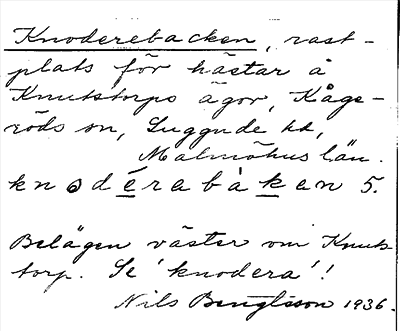 Knoderebacken, rast-
plats för hästar å
Knutstorps ägor, Kåge-
röds sn, Luggude hd,
Malmöhus län.
knodérabàken 5.
Belägen väster om Knuts
torp. Se 'knodera'!
Nils Bengtsson 1936.